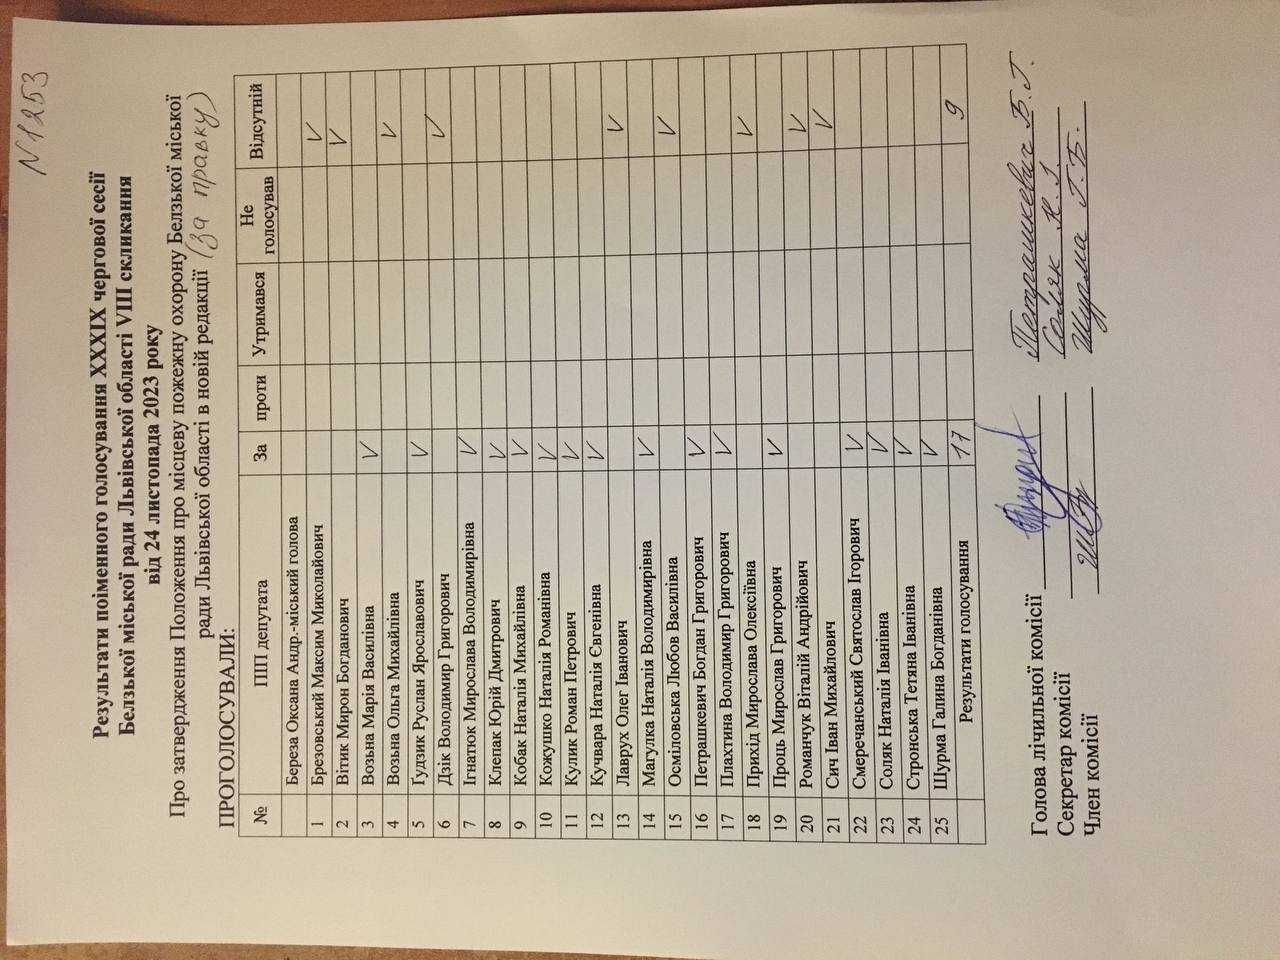 N 1253
Результати поіменного голосування XXXIX чергової сесії
Белзької міської ради Львівської області VIII скликання
від 24 листопада 2023 року
Про затвердження Положення про місцеву пожежну охорону Белзької міської
ради Львівської області в новій редакції (за правку)
ПРОГОЛОСУВАЛИ:
№ ПІП депутата За проти Утримався Не голосував Відсутній
Береза Оксана Андр.-міський голова
1 Брезовський Максим Миколайович V
2 Вітик Мирон Богданович V
3 Возьна Марія Василівна V
4 Возьна Ольга Михайлівна V
5 Ґудзик Руслан Ярославович V
6 Дзік Володимир Григорович V
7 Ігнатюк Мирослава Володимирівна V
8 Клепак Юрій Дмитрович V
9 Кобак Наталія Михайлівна V
10 Кожушко Наталія Романівна V
11 Кулик Роман Петрович V
12 Кучвара Наталія Євгенівна V
13 Лаврух Олег Іванович V
14 Магулка Наталія Володимирівна V
15 Осміловська Любов Василівна V
16 Петрашкевич Богдан Григорович V
17 Плахтина Володимир Григорович V
18 Прихід Мирослава Олексіївна V
19 Проць Мирослав Григорович V
20 Романчук Віталій Андрійович V
21 Сич Іван Михайлович V
22 Смеречанський Святослав Ігорович V
23 Соляк Наталія Іванівна V
24 Стронська Тетяна Іванівна V
25 Шурма Галина Богданівна V
Результати голосування 17 9
Голова лічильної комісії Петрашкевич Б.Г.
Секретар комісії Соляк Н.І.
Член комісії Шурма Г.Б.